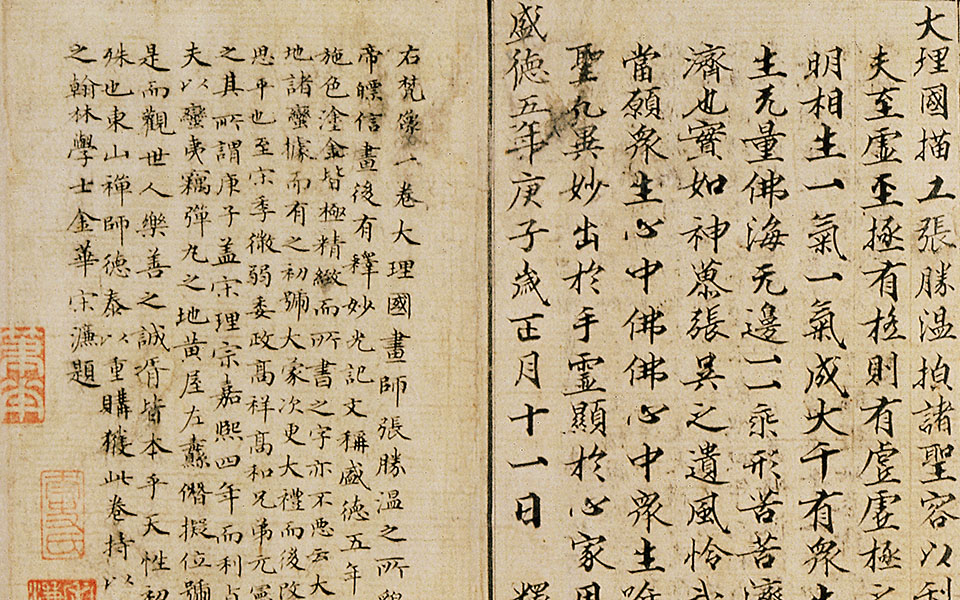 大理國描工張勝温描諸聖容以利
夫至虛至極有極則有虛虛極之
明相生一氣一氣成大千有衆生
生无量佛海无邊一一乘形苦苦濟
濟也實如神慕張吳之遺風恰武
當願衆生心中佛佛心中衆生唯
聖凡異妙出於手靈顯於心家用
盛德五年庚子歲正月十一日 釋
右梵像一卷大理國畫師張勝温之所貌
帝驃信畫後有釋妙光記文稱盛德五年
施色塗金皆極精緻而所書之字亦不惡云大
地諸蠻據而有之初號大蒙次更大禮而後改
思平也至宋季微弱委政高祥高和兄弟元憲
之其所謂庚子蓋宋理宗嘉熙四年而利貞
夫以蠻夷竊彈丸之地黄屋左纛僭擬位號
是而觀世人樂善之誠胥皆本乎天性初
殊也東山禪師德泰以重購獲此卷持以
之翰林學士金華宋濂題